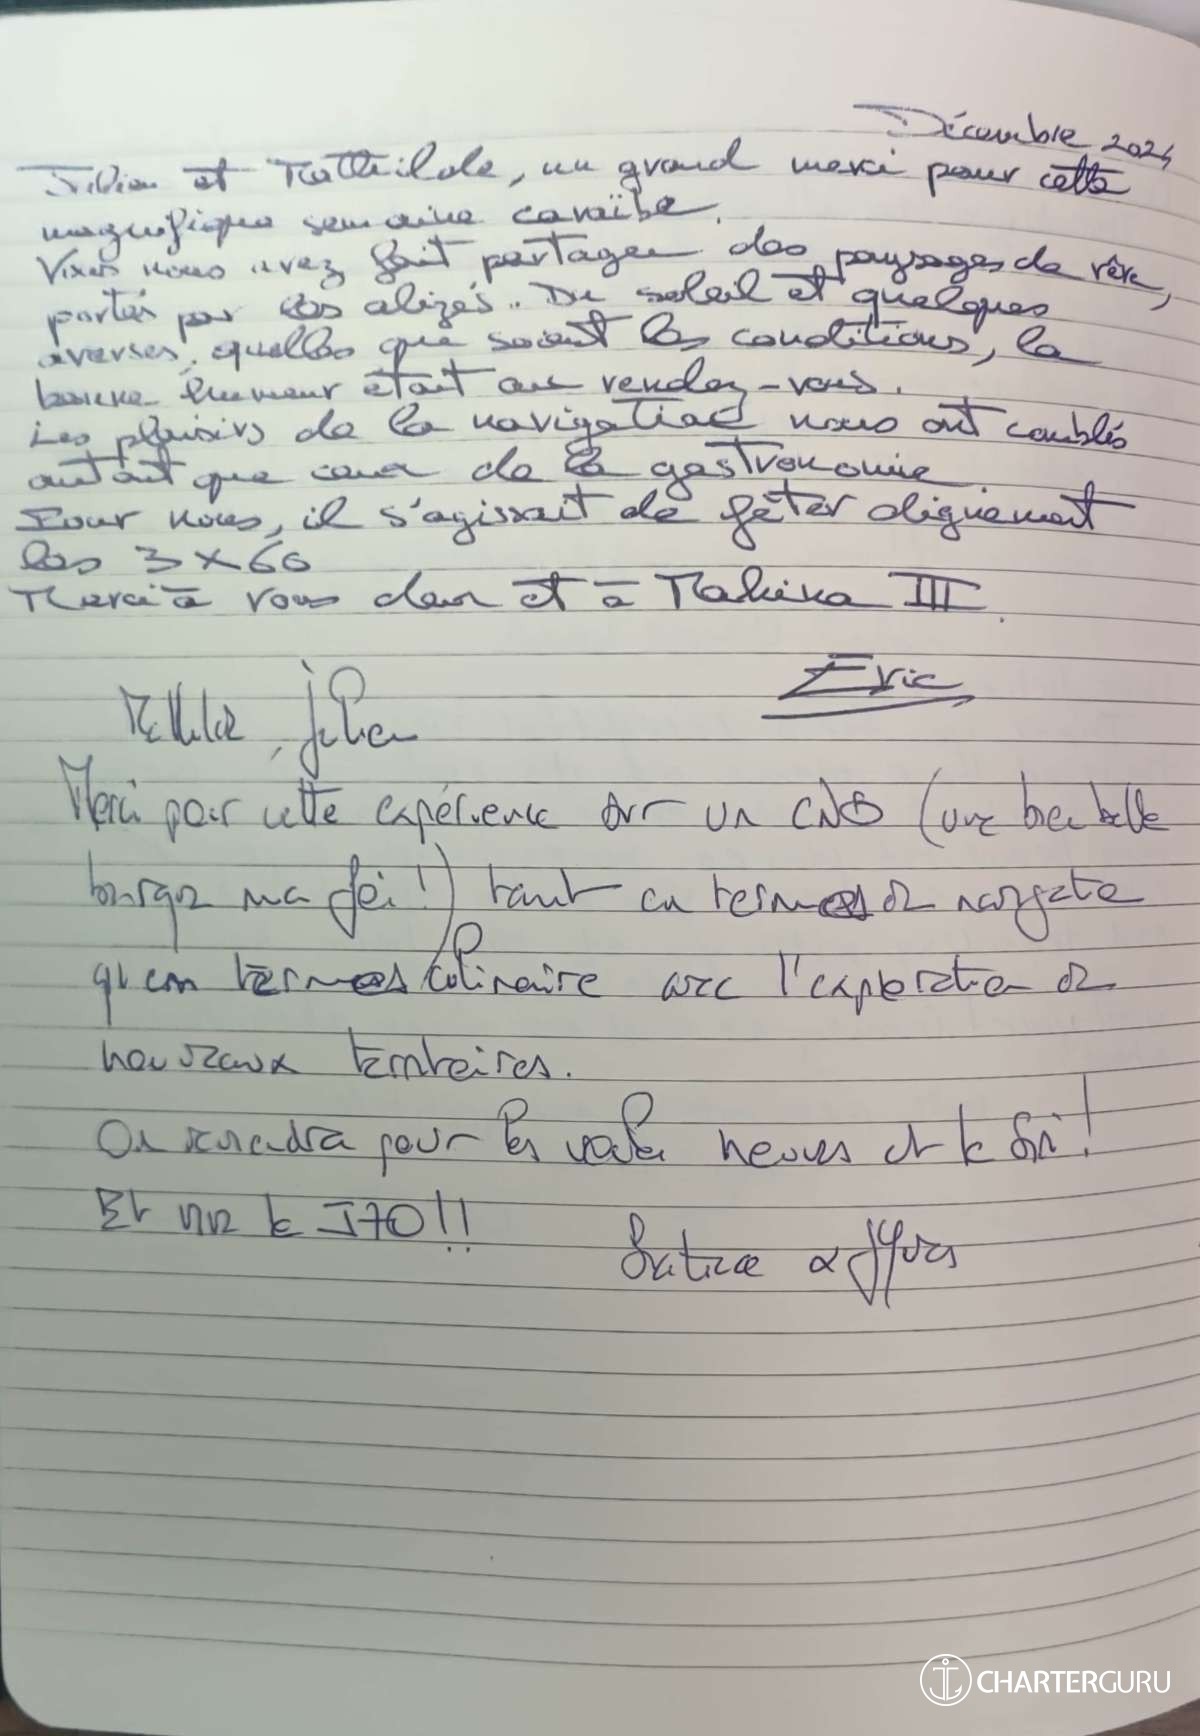 Décembre 2024
Julien et Mathilde, un grand merci pour cette
magnifique semaine caraïbe.
Vous nous avez fait partager des paysages de rêve,
portés par les alizés. Du soleil et quelques
averses, quelles que soient les conditions, la
bonne humeur était au rendez-vous.
Les plaisirs de la navigation nous ont comblés
autant que ceux de la gastronomie
Pour nous, il s'agissait de fêter dignement
les 3 x 60
Merci à vous deux et à Mahina III.
Eric
Mathilde, Julien
Merci pour cette expérience sur un CNB (une bien belle
barque ma foi!) tant en termes de
qu'en termes culinaire avec l'exploration de
nouveaux territoires.
On reviendra pour les voiles neuves et le spi!
Et vive le J70!!
& J Yves
CHARTERGURU